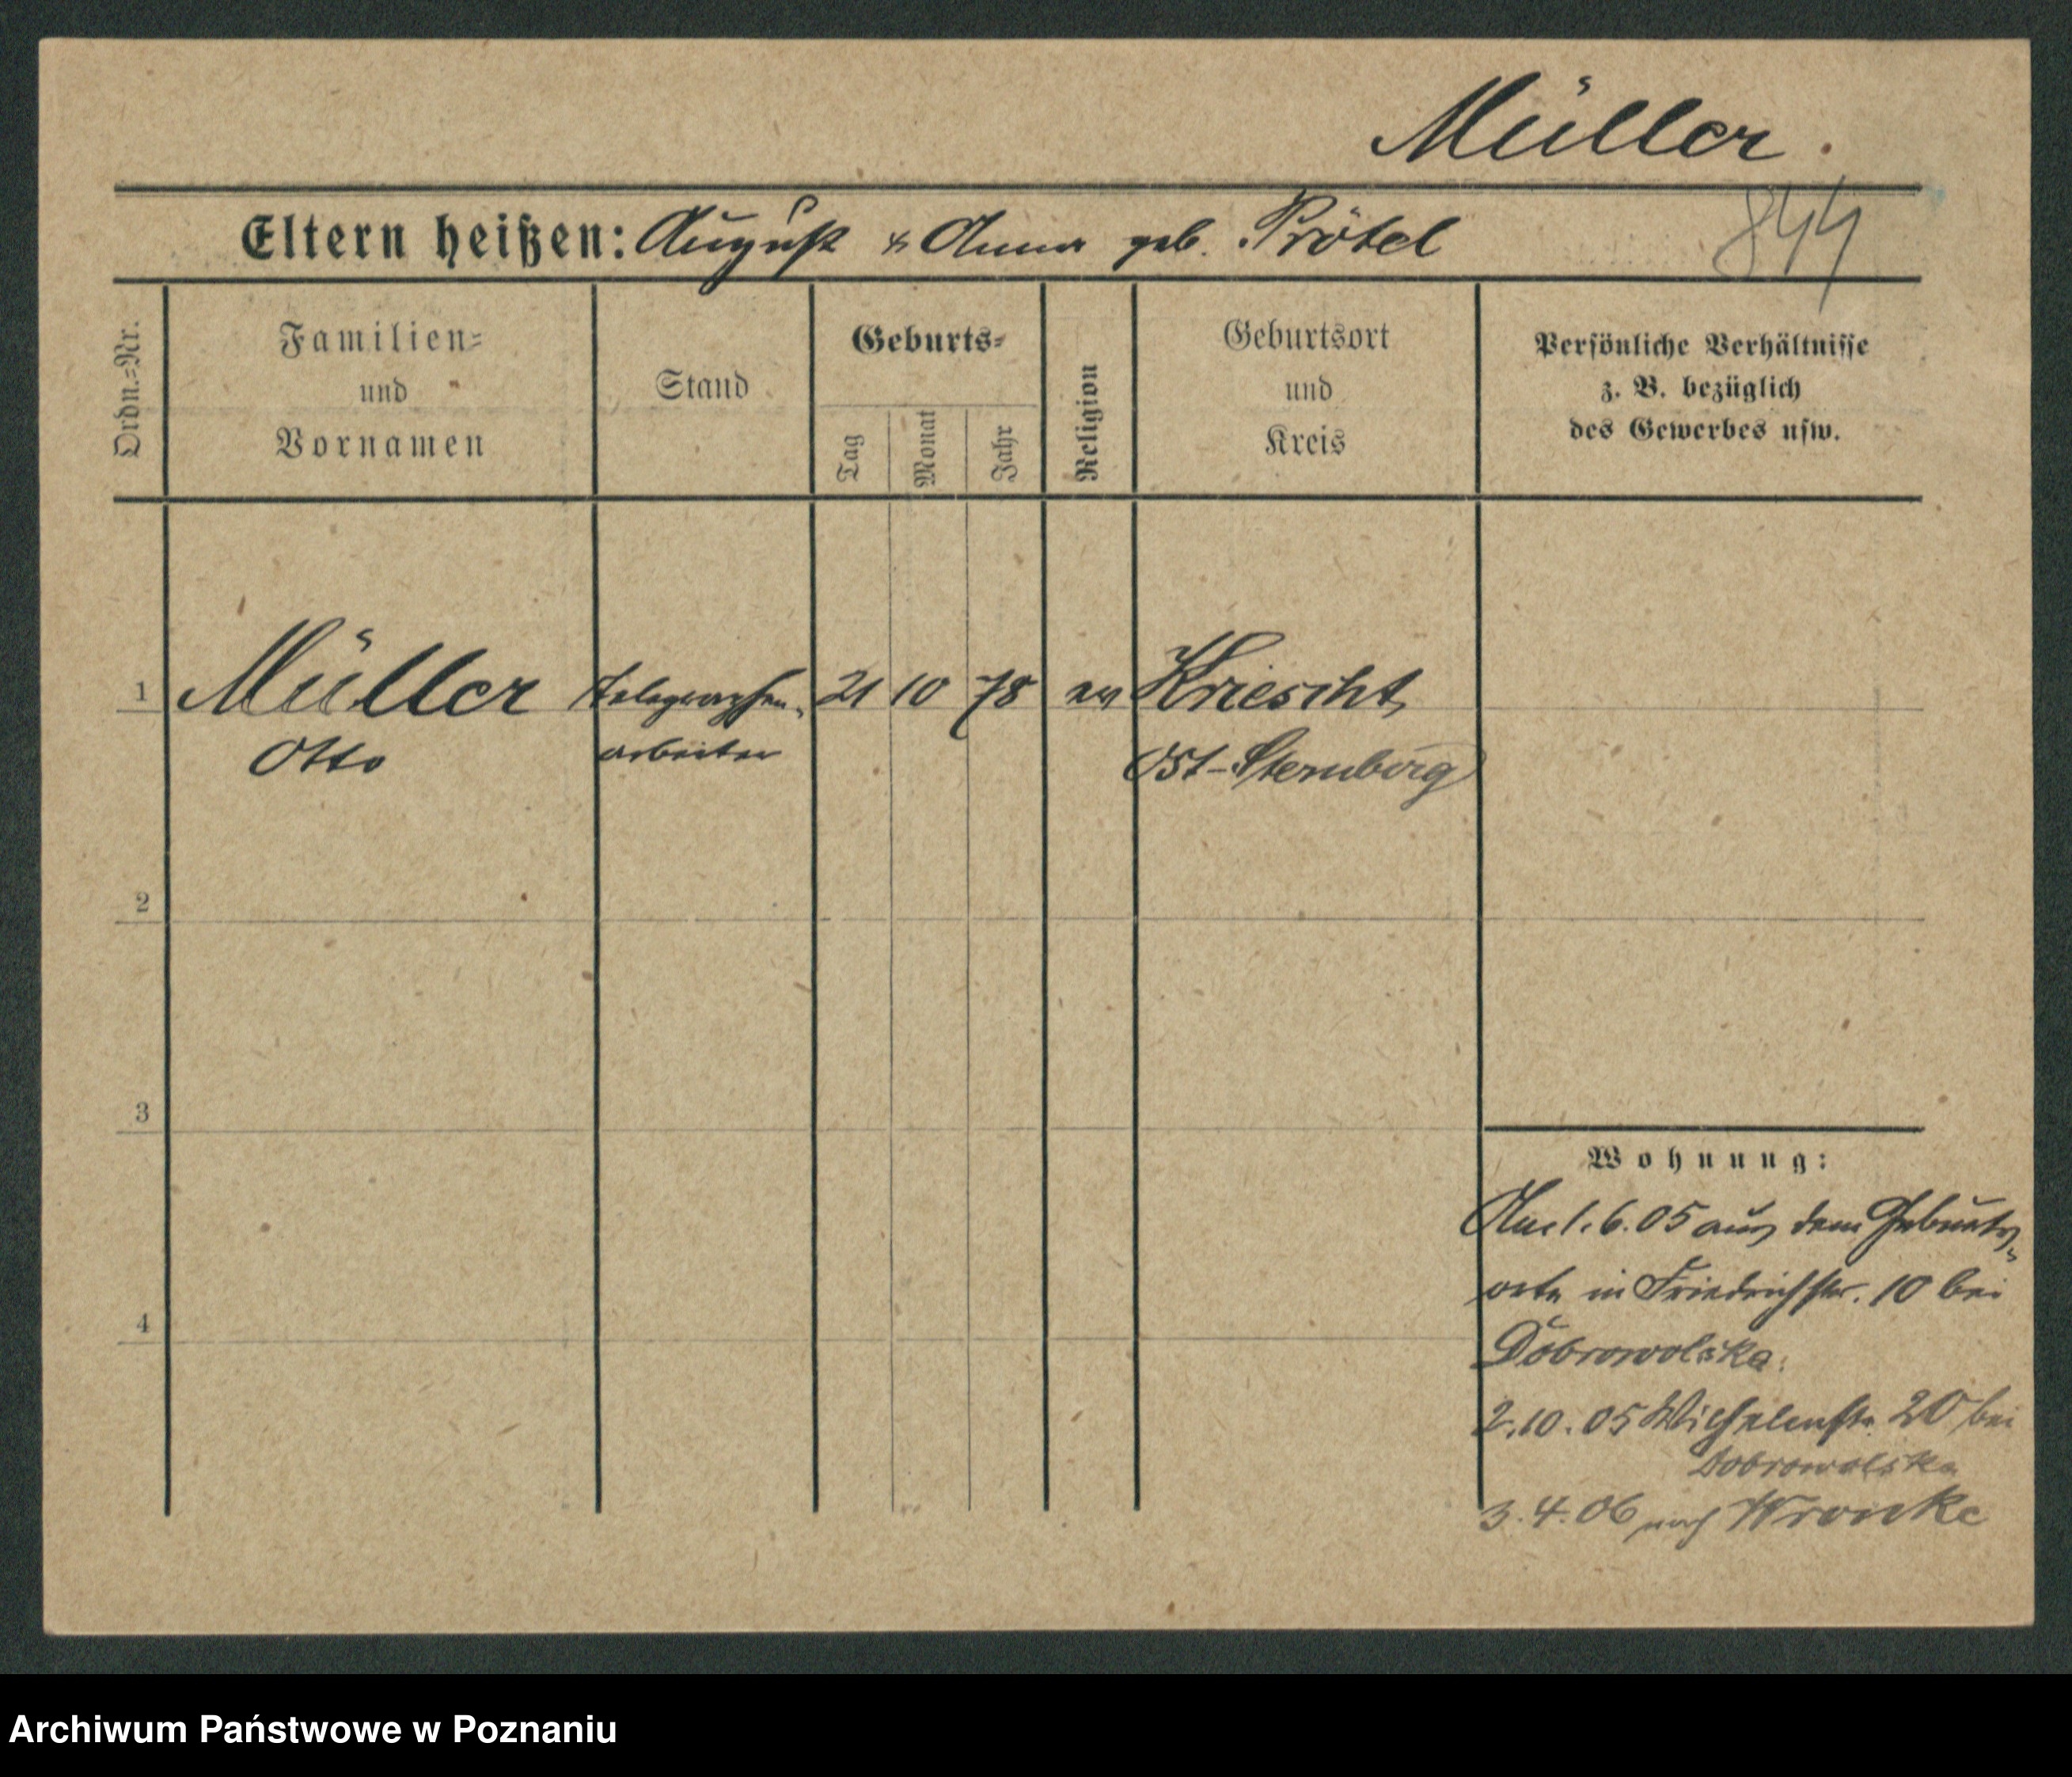 Müller.
Eltern heißen: August & Anna geb. Prötel
844
Ordn.=Nr.
Familien=
und
Vornamen
Stand
Geburts=
Tag
Monat
Jahr
Religion
Geburtsort
und
Kreis
Persönliche Verhältnisse
z. B. bezüglich
des Gewerbes usw.
1 Müller Telegraphen- 21 10 78 ev Kriescht,
Otto arbeiter Ost-Sternberg
2
3
4
Wohnung:
1.6.05 aus dem Geburts-
orte in Friedrichstr. 10 bei
Dobrowolska.
2.10.05 Wilhelmstr. 20 bei
Dobrowolska
3.4.06 nach Wronke
Archiwum Państwowe w Poznaniu